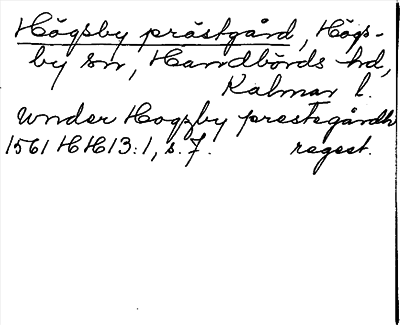 Högsby prästgård, Högs-
by sn, Handbörds hd,
Kalmar l.
Under Hogzby prestegårdh
1561 HH 13:1, s. 7. regest.